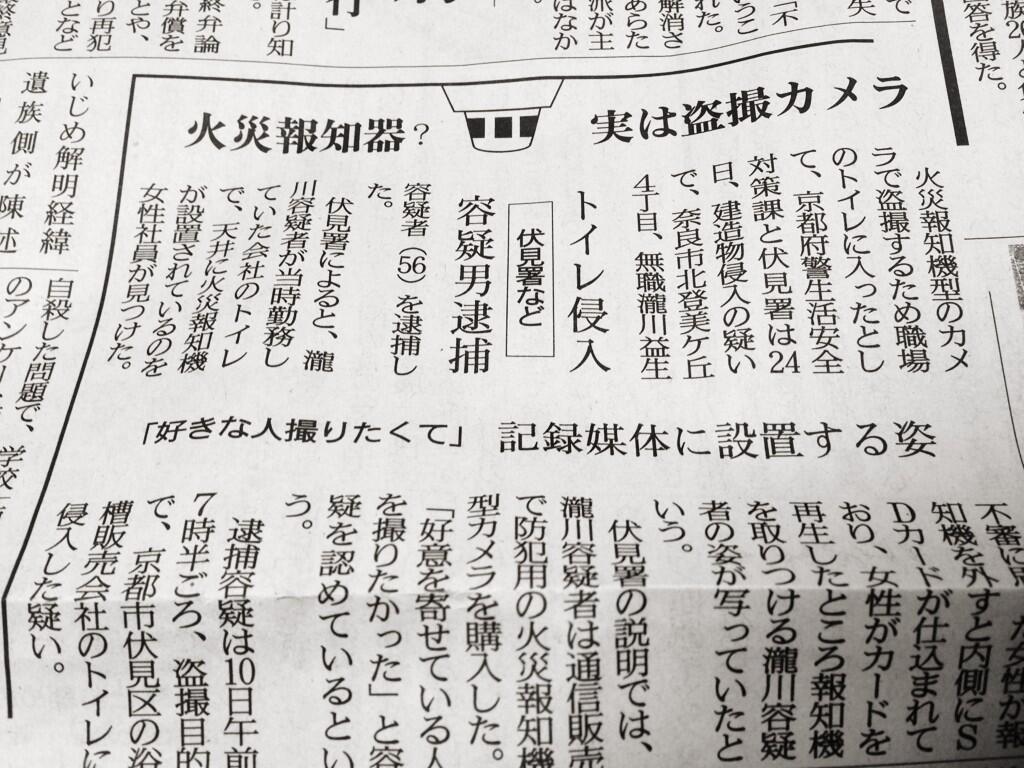 火災報知器?
実は盗撮カメラ
トイレ侵入
伏見署など
容疑男逮捕
火災報知機型のカメ
ラで盗撮するため職場
のトイレに入ったとし
て、京都府警生活安全
対策課と伏見署は24
日、建造物侵入の疑い
で、奈良市北登美ケ丘
4丁目、無職瀧川益生
容疑者(56)を逮捕し
た。
伏見署によると、瀧
川容疑者が当時勤務し
ていた会社のトイレ
で、天井に火災報知機
が設置されているのを
女性社員が見つけた。
「好きな人撮りたくて」
記録媒体に設置する姿
不審に思った女性が報
知機を外すと内側にS
Dカードが仕込まれて
おり、女性がカードを
再生したところ報知機
を取りつける瀧川容疑
者の姿が写っていたと
いう。
伏見署の説明では、
瀧川容疑者は通信販売
で防犯用の火災報知機
型カメラを購入した。
「好意を寄せている人
を撮りたかった」と容
疑を認めているとい
う。
逮捕容疑は10日午前
7時半ごろ、盗撮目的
で、京都市伏見区の浴
槽販売会社のトイレに
侵入した疑い。
いじめ解明経緯
遺族側が陳述
自殺した問題で、学校
のアンケー
答を得た。
解消さ
れた。
あらた
派が主
はなか
計り知
れない。
終弁論
弁償を
とや、
り再犯
となど